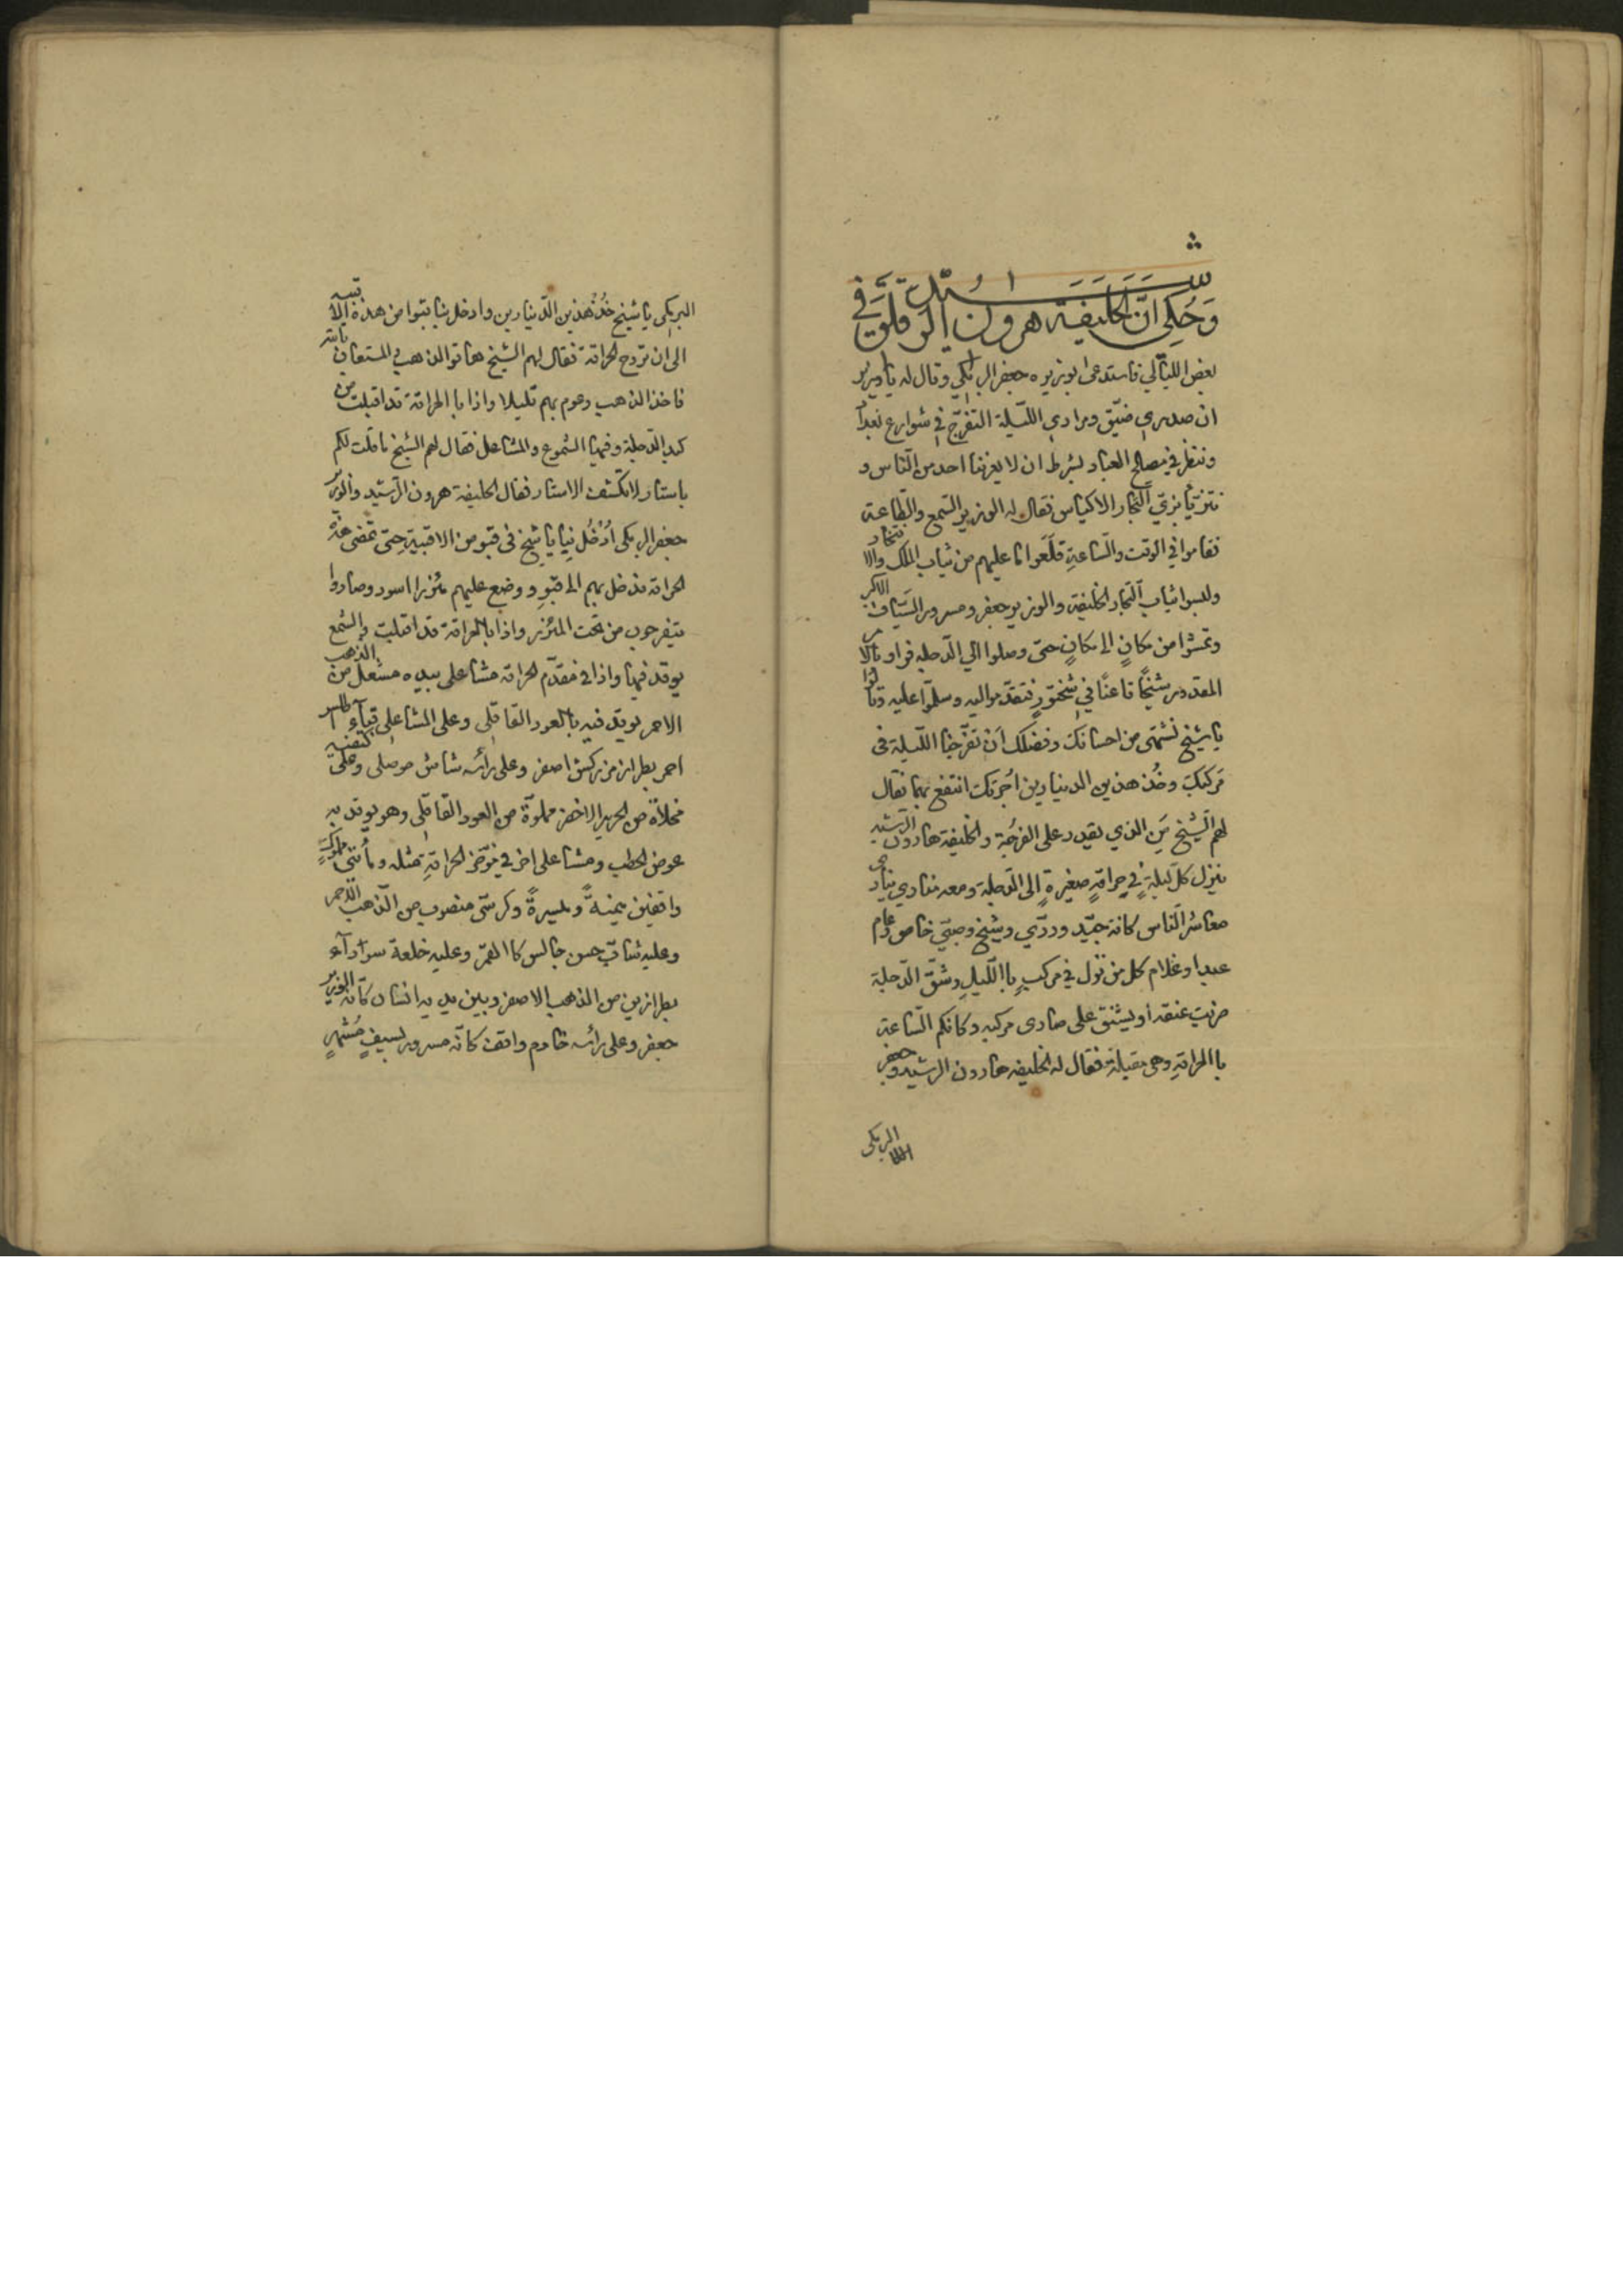 وَحُكِيَ اَنَّ الخليفة هرون الرشيد قلق في
بعض الليالي فاستدعى بوزيره جعفر البرمكي وقال له يا وزير
ان صدري ضيّق ومرادي اللّيلة التفرّج في شوارع بغداد
وننظر في مصالح العباد بشرط ان لا يعرفنا احد من النّاس و
نتزيّا بزيّ التّجار الاكياس فقال له الوزير السّمع والطّاعة
فقاموا في الوقت والسّاعةِ قلعوا ما عليهم من ثياب الملك والافتخار
ولبسوا ثياب التّجار الخليفة والوزير جعفر ومسرور السّيّاف الاكبر
وتمشّوا من مكانٍ الى مكانٍ حتى وصلوا الي الدّجله فراوا بالامر
المقدور شيخًا قاعدًا في شختورٍ فتقدّموا اليه وسلّموا عليه وقالوا
يا شيخ نشتهى من احسانك وفضلك اَن تفرّجنا اللّيلة في
مَركبك وخُذ هذين الدينارين اُجرتك انتفع بهما فقال
لهم الشّيخ مَن الذي يقدر على الفرجَة والخليفة هارون الرّشيد
ينزل كلّ ليلةٍ في حراقةٍ صغيرةٍ الى الدّجلة ومعه منادي ينادى
معاشر النّاس كافة جيّد وردّي وشيخ وصبيّ خاص وعام
عبد او غلام كل من نزل في مركبٍ باالّليلِ وشقّ الدّجلة
ضربت عنقه اَو يشنق على صارى مركبه وكانكم السّاعة
باالحراقةِ وهي مقبلة فقال له الخليفه هارون الرشيد وجعفر
البرمكى
البرمكى يا شيخ خُذ هذين الدّينارين وادخل بنا قبوا من هذه الاقبيه
الى ان تروح الحراقة فقال لهم الشيخ هاتوا الذهب والمستعان بالله
فاخذ الذهب وعوم بهم قليلا واذا با الحراقة قد اقبلت من
كبد الدّجلة وفيها الشّموع والمشاعل فقال لهم الشيخ ما قلت لكم
يا ستار لا تكشف الاستار فقال الخليفة هرون الرّشيد والوزير
جعفر البرمكى اُدْخُل بِنا يا شيخ في قبو من الاقبية حتى تمضى هذه
الحراقه فدخل بهم الى قبوٍ ووضع عليهم مئزرا اسود وصاروا
يتفرجون من تحت المئزر واذا باالحراقة قد اقبلت والشمع
يوقد فيها واذا في مقدّم الحراقه مشاعلى بيده مشعل من الذهب
الاحمر يوقد فيه باالعود القاقلى وعلى المشاعلى قباء اطلس
احمر بطراز مزركش اصفر وعلى رأسه شاش موصلى وعلى كتفيه
مخلاةٌ من الحرير الاخضر مملوّة من العود القاقلى وهو يوقد به
عوض الحطب ومشاعلى اخر في مؤخر الحراقةِ مثله ومأتى مملوكٍ
واقفين يمينةً ويسيرةً وكرسّى منصوب من الذّهب الاحمر
وعليه شابّ حسن جالس كا القمر وعليه خلعة سودآء
بطرازين من الذهب الاصفر وبين يديه انسان كانّه الوزير
جعفر وعلى رأسه خادم واقف كانّه مسرور بسيفٍ مُشهرٍ